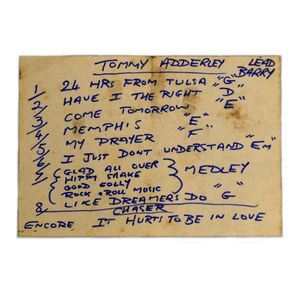 TOMMY ADDERLEY LEAD BARRY
1 24 HRS FROM TULSA "G"
2 HAVE I THE RIGHT D
3 COME TOMORROW "E"
4 MEMPHIS "E"
5 MY PRAYER "F"
6 I JUST DONT UNDERSTAND "Em"
7 GLAD ALL OVER
HIPPY SHAKE MEDLEY
GOOD GOLLY
ROCK & ROLL MUSIC
8 LIKE DREAMERS DO "G"
CHASER
ENCORE IT HURTS TO BE IN LOVE